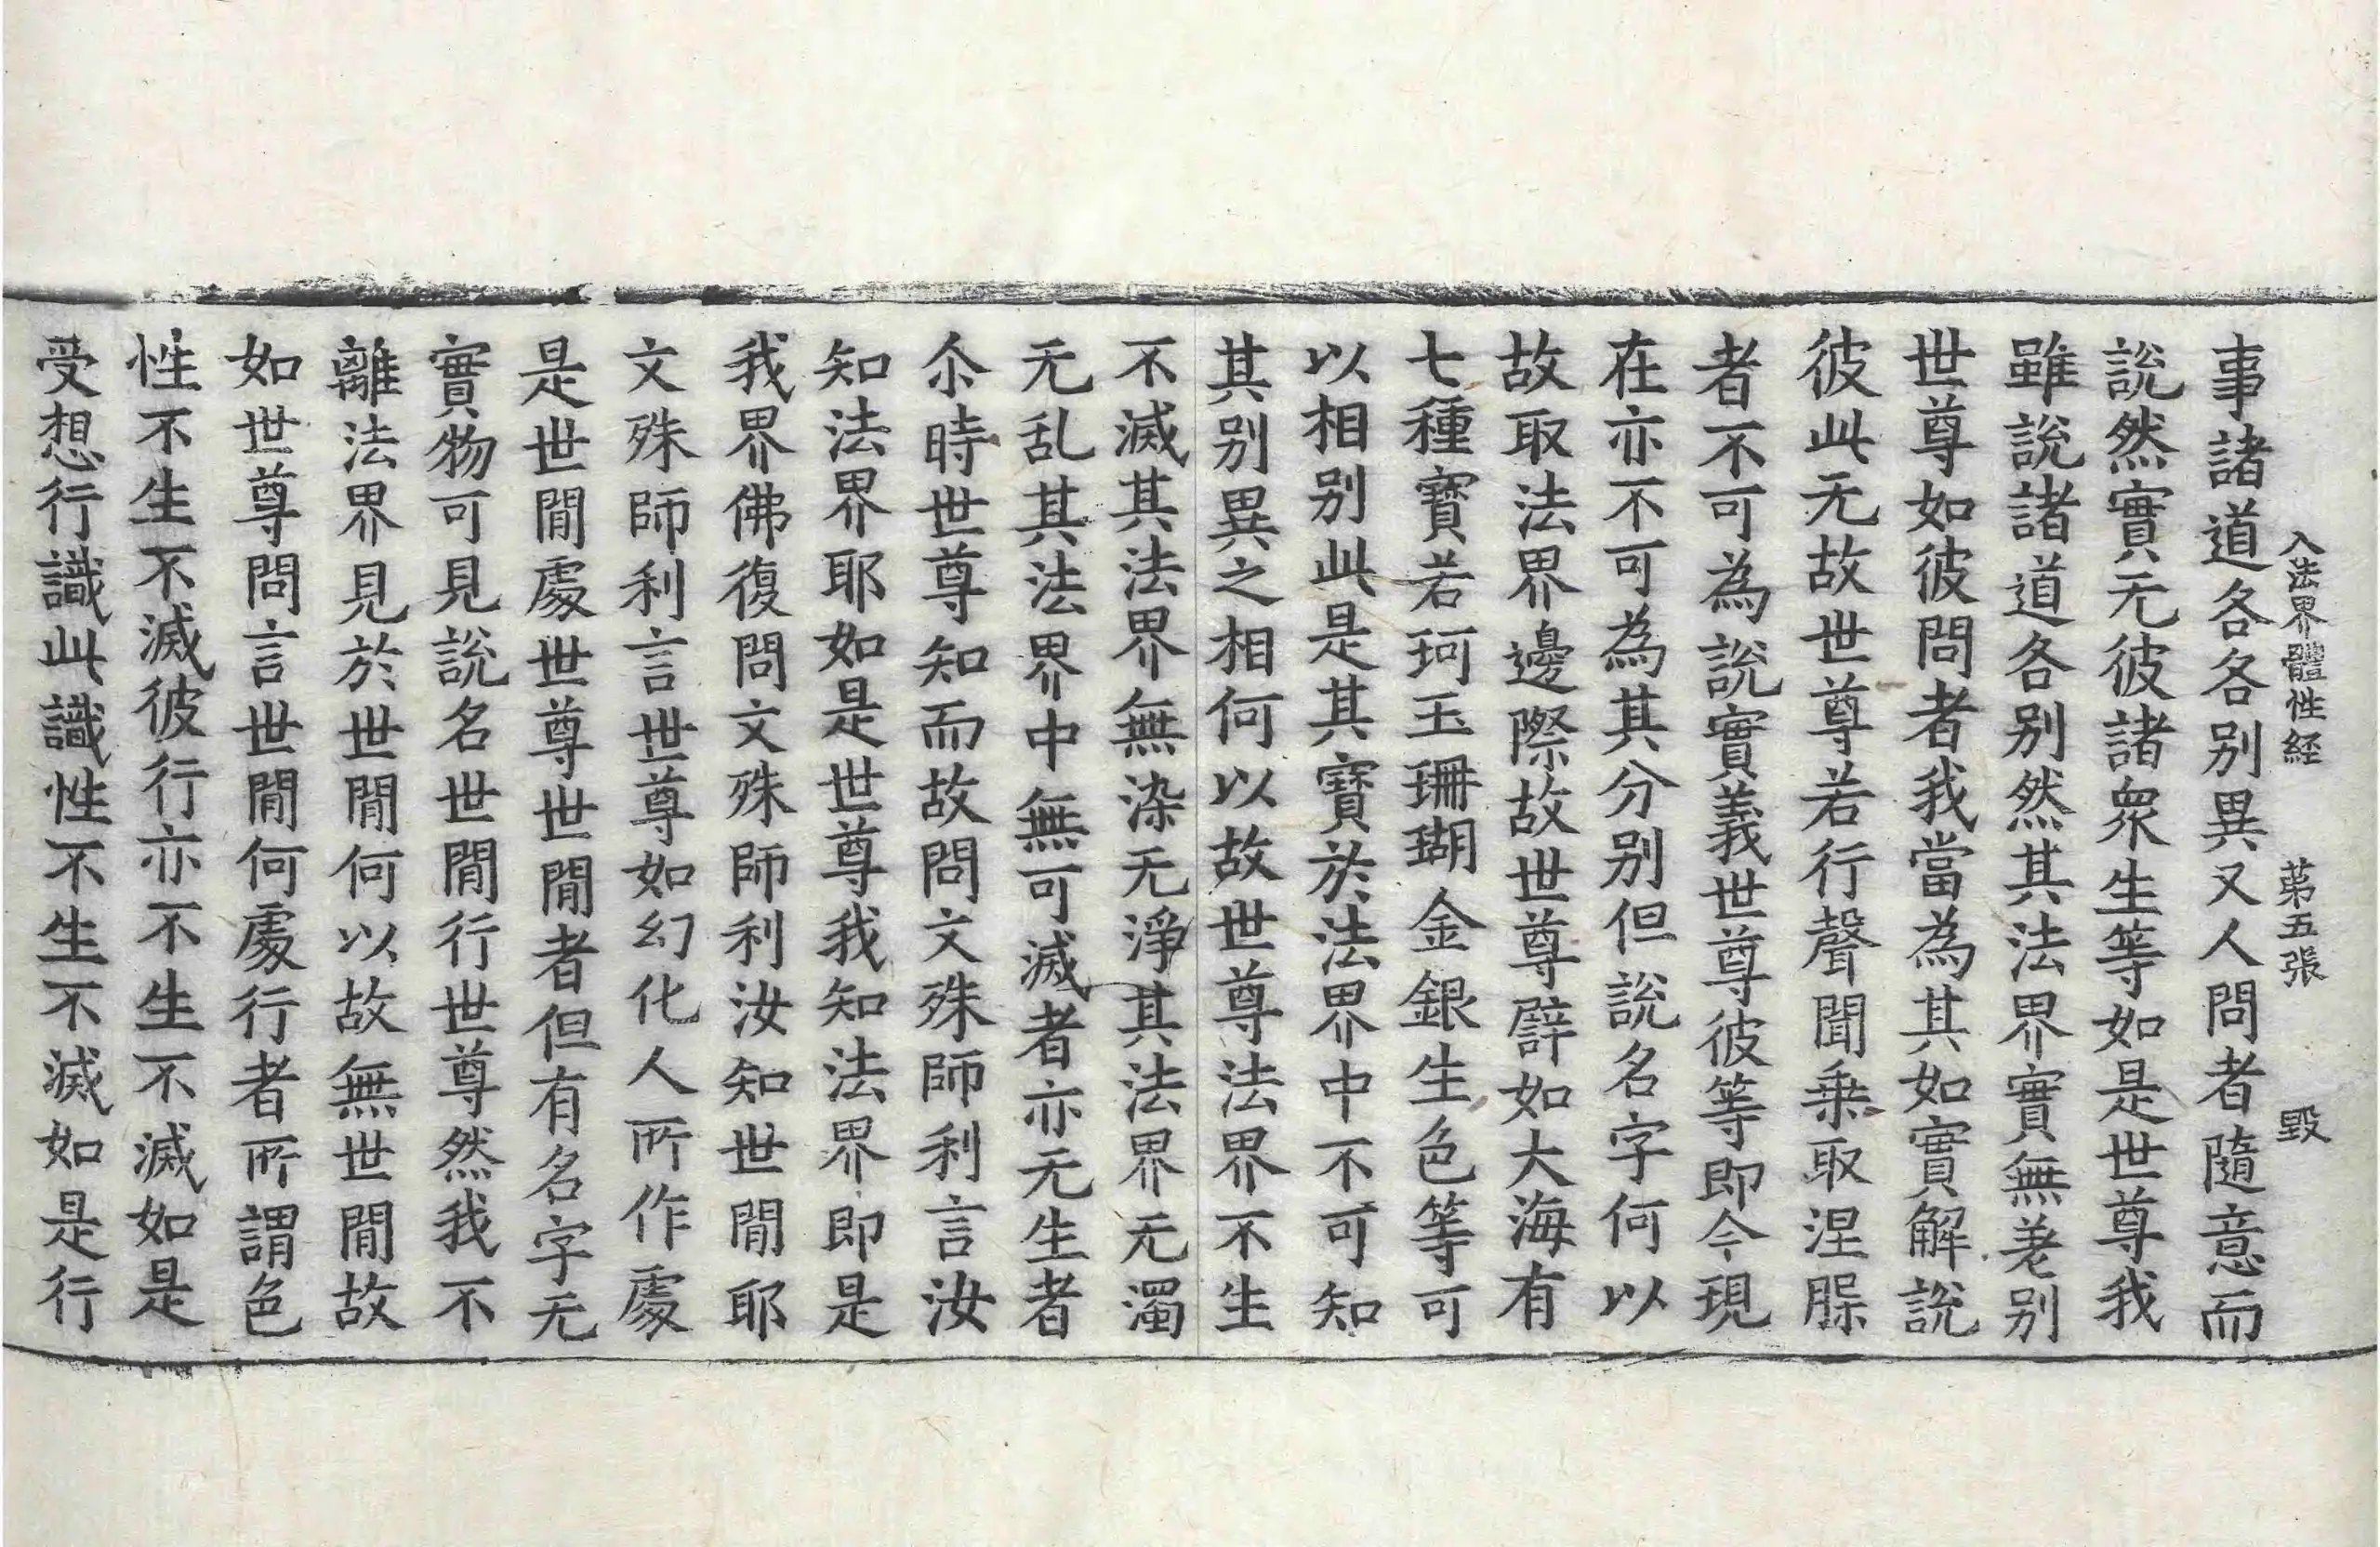 入法界體性経 苐五張 毀
事諸道各各別異又人問者隨意而
說然實无彼諸衆生等如是世尊我
雖說諸道各別然其法界實無差別
世尊如彼問者我當為其如實解說
彼此无故世尊若行聲聞乗取涅槃
者不可為說實義世尊彼等即今現
在亦不可為其分別但說名字何以
故取法界邊際故世尊譬如大海有
七種寶若珂玉珊瑚金銀生色等可
以相別此是其寶於法界中不可知
其別異之相何以故世尊法界不生
不滅其法界無染无淨其法界无濁
无乱其法界中無可滅者亦无生者
尒時世尊知而故問文殊師利言汝
知法界耶如是世尊我知法界即是
我界佛復問文殊師利汝知世間耶
文殊師利言世尊如幻化人所作處
是世間處世尊世間者但有名字无
實物可見說名世間行世尊然我不
離法界見於世間何以故無世間故
如世尊問言世間何處行者所謂色
性不生不滅彼行亦不生不滅如是
受想行識此識性不生不滅如是行